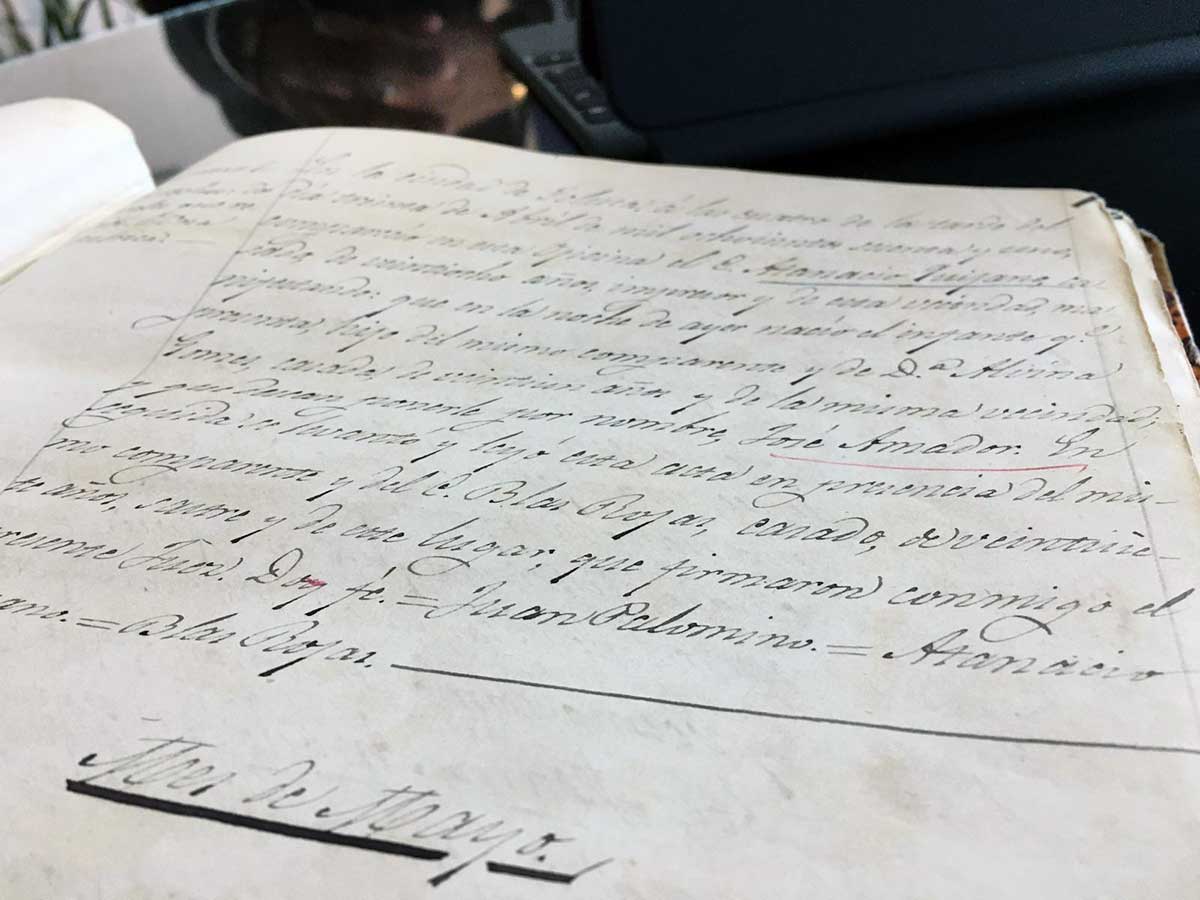 En la ciudad de Toluca, á las cuatro de la tarde del
día treinta de Abril de mil ochocientos sesenta y uno,
compareció en esta oficina el C. Atanacio Quijano, ca-
sado de veintiocho años, impresor y de esta vecindad, ma-
nifestando: que en la noche de ayer nació el infante q.e
presenta, hijo del mismo compareciente y de D.a Albina
Gomes, casada, de veintiun años y de la misma vecindad,
y que desean ponerle por nombre, José Amador. En
seguida se levantó y leyó esta acta en presencia del mis-
mo compareciente y del C. Blas Rojas, casado, de veintinue-
ve años, sastre y de este lugar, que firmaron conmigo el
Juez. Doy fé. = Juan Palomino. = Atanacio
= Blas Rojas.
Mes de Mayo.